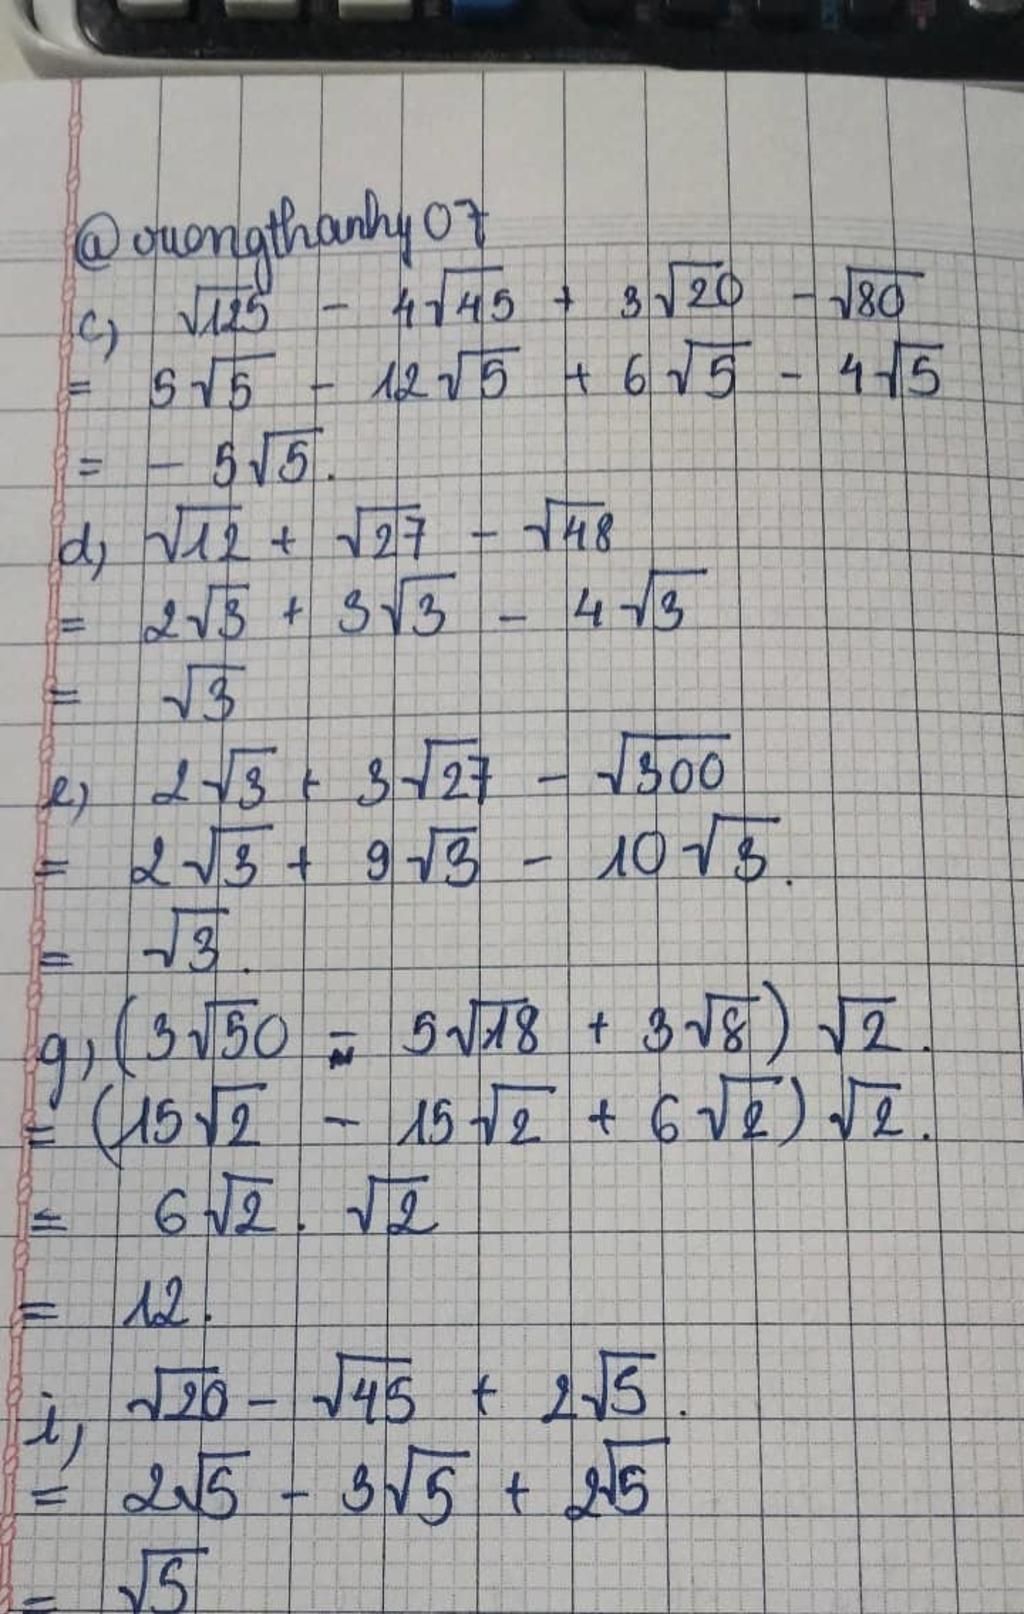 @vuongthanhy07
c) √125 - 4√45 + 3√20 - √80
= 5√5 - 12√5 + 6√5 - 4√5
= - 5√5.
d) √12 + √27 - √48
= 2√3 + 3√3 - 4√3
= √3
e) 2√3 + 3√27 - √300
= 2√3 + 9√3 - 10√3.
= √3.
g) (3√50 - 5√18 + 3√8) √2.
= (15√2 - 15√2 + 6√2) √2.
= 6√2 . √2
= 12.
i) √20 - √45 + 2√5.
= 2√5 - 3√5 + 2√5
= √5